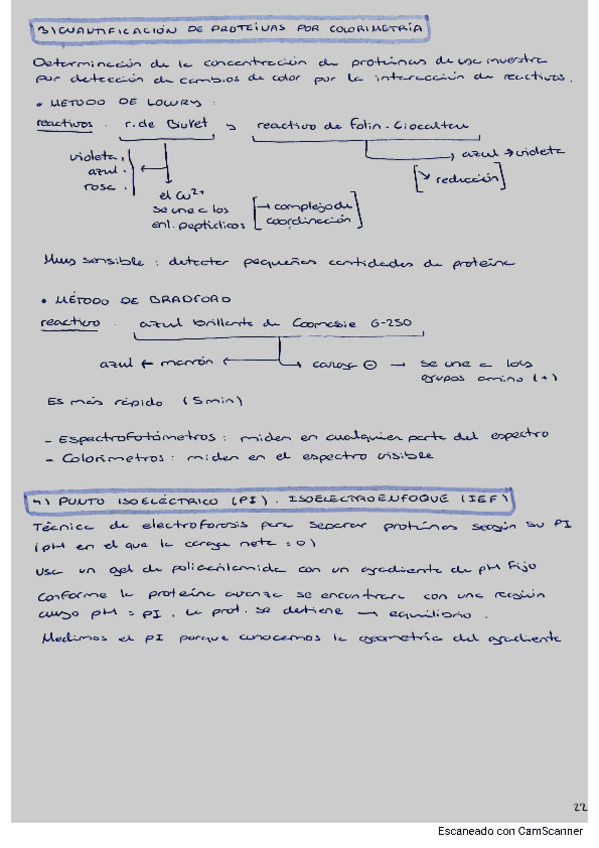 3) CUANTIFICACIÓN DE PROTEÍNAS POR COLORIMETRÍA
Determinación de la concentración de proteínas de una muestra
por detección de cambios de color por la interacción de reactivos.
• MÉTODO DE LOWRY :
reactivos : r. de Biuret y reactivo de Folin-Ciocalteu
violeta.
azul.
rosa.
el Cu2+
se une a los
enl. peptídicos
[→ complejo de
coordinación]
azul → violeta
[↘ reducción]
Muy sensible : detectar pequeñas cantidades de proteína
• MÉTODO DE BRADFORD
reactivo : azul brillante de Coomasie G-250
azul ← marrón
carga ⊖ → se une a los
grupos amino (+)
Es más rápido (5min)
- Espectrofotómetros : miden en cualquier parte del espectro
- Colorímetros : miden en el espectro visible
4) PUNTO ISOELÉCTRICO (PI). ISOELECTROENFOQUE (IEF)
Técnica de electroforosis para separar proteínas según su PI
(pH en el que la carga neta = 0)
Usa un gel de poliacrilamida con un gradiente de pH fijo
Conforme la proteína avanza se encontrara con una región
cuyo pH = PI, la prot. se detiene → equilibrio.
Medimos el PI porque conocemos la geometría del gradiente
22
Escaneado con CamScanner